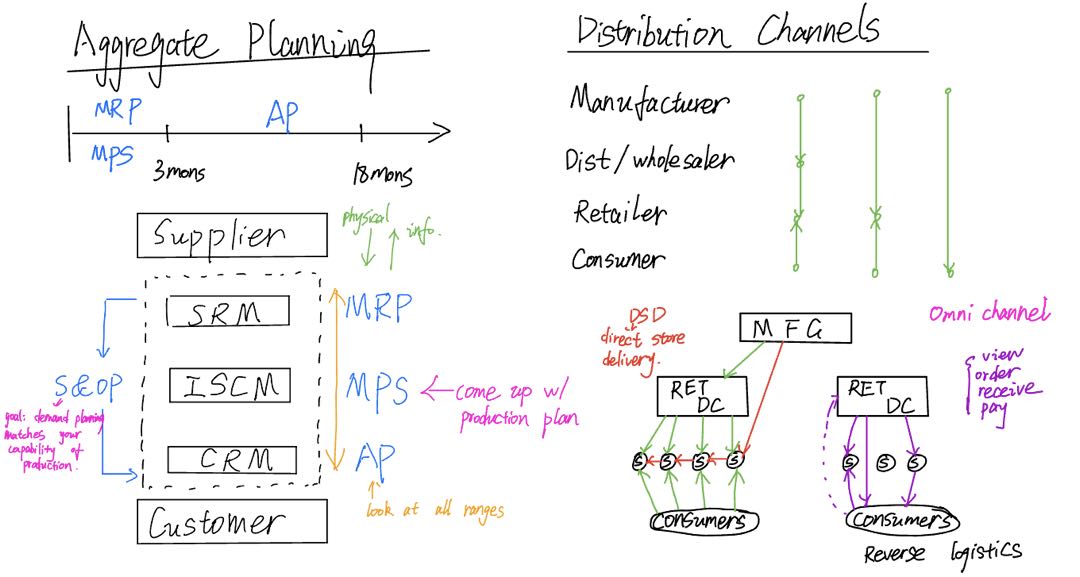 Aggregate Planning
MRP
AP
MPS
3mons
18mons
Supplier
physical
info.
SRM
MRP
S&OP
goal: demand planning
matches your
capability of
production.
ISCM
MPS
come up w/
production plan
CRM
AP
look at all ranges
Customer
Distribution Channels
Manufacturer
Dist/wholesaler
Retailer
Consumer
DSD
direct store
delivery.
MFG
RET
DC
S
S
S
S
Consumers
Omni channel
view
order
receive
pay
RET
DC
S
S
S
Consumers
Reverse logistics